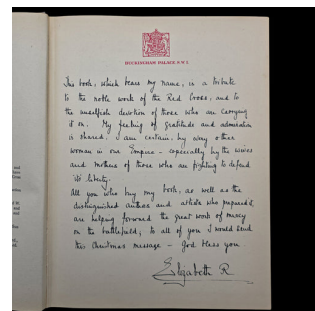 BUCKINGHAM PALACE S.W.1
This book, which bears my name, is a tribute
to the noble work of the Red Cross, and to
the unselfish devotion of those who are carrying
it on. My feeling of gratitude and admiration
is shared, I am certain, by every other
woman in our Empire – especially by the wives
and mothers of those who are fighting to defend
its liberty.
All you who buy my book, as well as the
distinguished authors and artists who prepared it,
are helping forward the great work of mercy
on the battlefield; to all of you I would send
this Christmas message – God bless you.
Elizabeth R